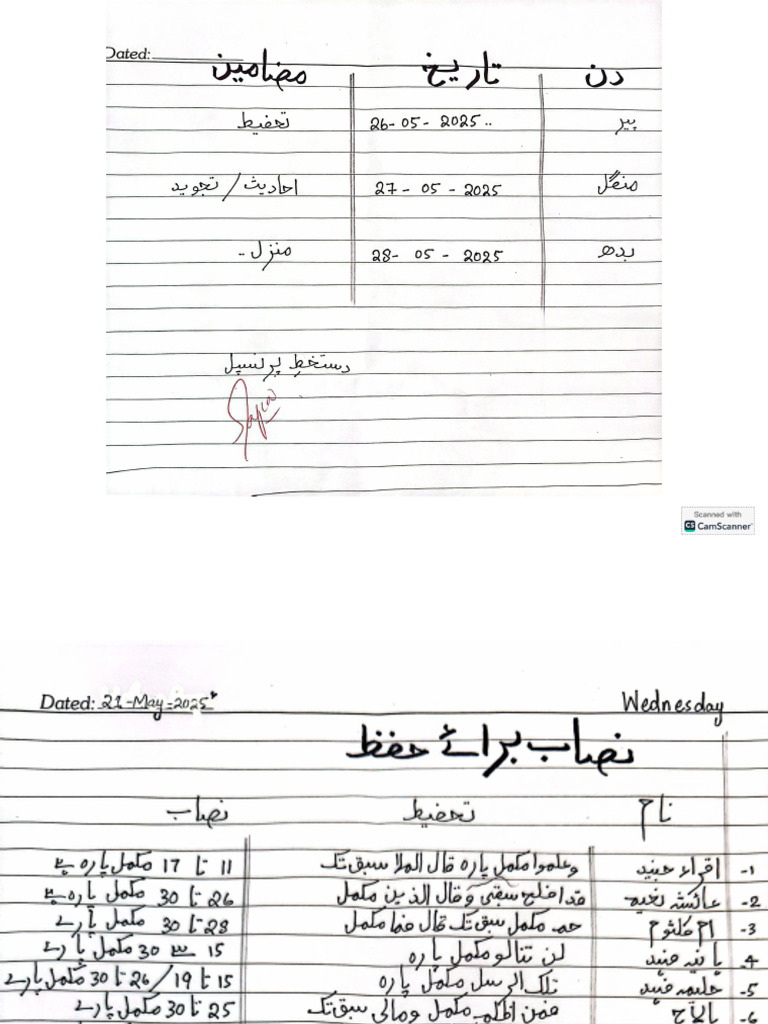 Dated:
دن تاریخ مضامین
پیر 26-05-2025.. تحفیظ
منگل 27-05-2025 احادیث/تجوید
بدھ 28-05-2025 منزل-
دستخط پرنسپل
Scanned with
CS CamScanner
Dated: 21-May-2025 Wednesday
نصاب برائے حفظ
نام تحفیظ نصاب
1- اقراء جنید وعلموا مکمل پارہ قال الملا سبق تک 11 تا 17 مکمل پارہ
2- عائشہ نعیم قد افلح سبقی وقال الذین مکمل 26 تا 30 مکمل پارہ
3- ام کلثوم حم مکمل سبق تک قال فما مکمل 28 تا 30 مکمل پارے
4- ہانیہ لن تنالو مکمل پارہ 15 سے 30 مکمل پارے
5- حلیمہ تلک الرسل مکمل پارہ 15 تا 19/26 تا 30 مکمل پارے
6- فمن اظلم مکمل ومالی سبق تک 25 تا 30 مکمل پارے